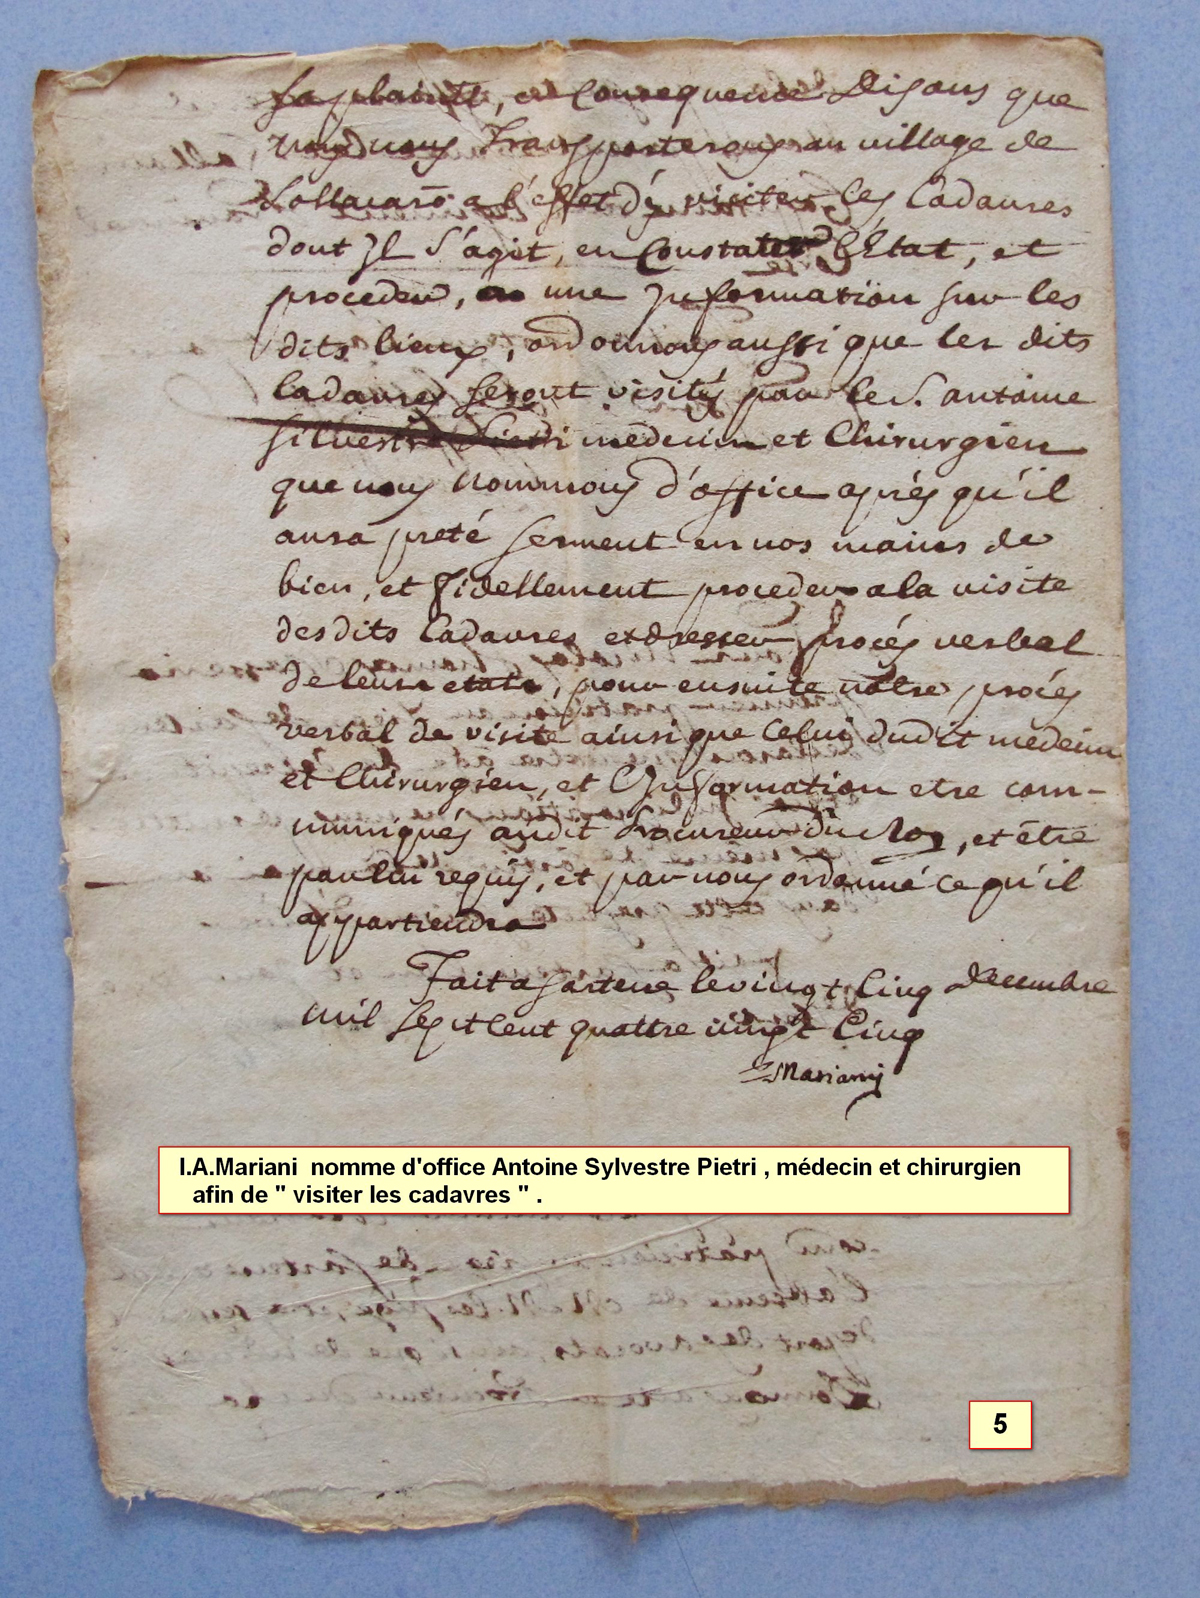 sa plainte, en Consequence Disons que
nous nous Transporterons au village de
Sollacaró a l'effet d'y visiter les Cadavres
dont Jl s'agit, en Constater l'Etat, et
proceder, a une Jnformation sur les
dits lieux, ordonnons aussi que les dits
Cadavres seront visités par le S. antoine
silvestre Pietri médecin et Chirurgien
que nous nommons d'office aprés qu'il
aura preté serment en nos mains de
bien, et fidellement proceder a la visite
desdits Cadavres et dresser procés verbal
de leurs etats, pour ensuite nôtre procés
verbal de visite ainsi que Celui dudit medecin
et Chirurgien, et Jnformation etre com-
muniqués audit Procureur du Roy, et étre
par lui requis, et par nous ordonné ce qu'il
appartiendra
Fait a sartene le vingt Cinq Decembre
mil sept Cent quattre vingt Cinq
Mariani
I.A.Mariani nomme d'office Antoine Sylvestre Pietri , médecin et chirurgien
afin de " visiter les cadavres " .
5